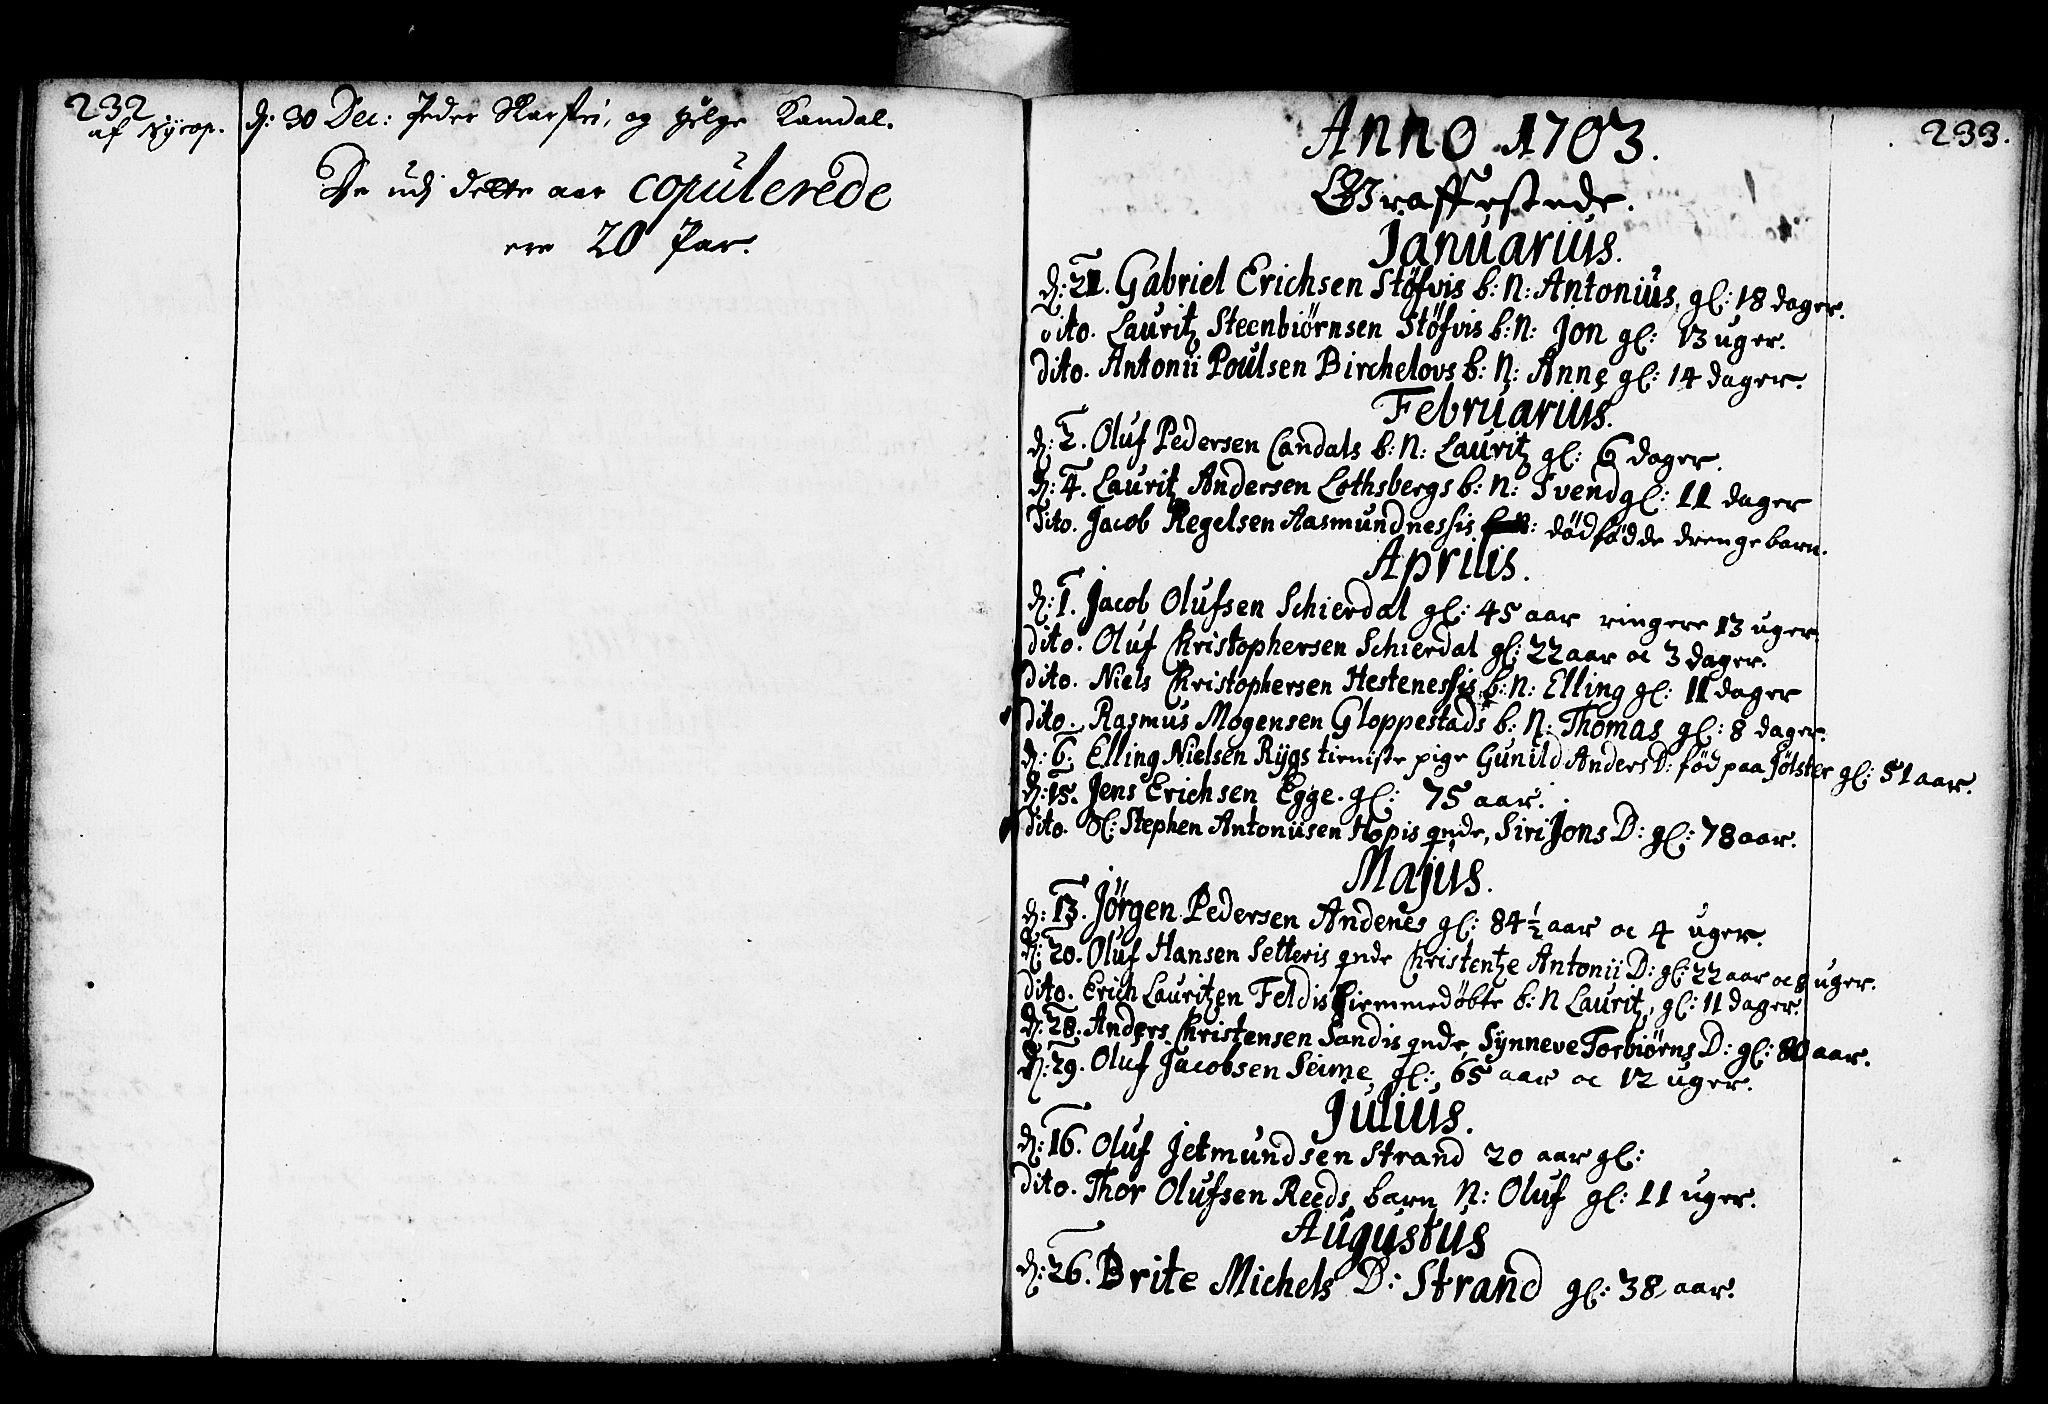 232
af Nÿcop.
d: 30 Dec: Peder Skarstei, og Helge Kandal.
De udj dette aar copulerede
ere 20 Par.
233.
Anno 1703.
Graffestede.
Januarius.
d: 21. Gabriel Erichsen Støfvis b: N: Antonius, gl: 18 dager.
dito. Lauritz Steenbiørnsen Støfvis b: N: Jon gl: 13 uger.
dito. Antonii Poulsen Birchelovs b: N: Anne gl: 14 dager.
Februarius.
d: 2. Oluf Pedersen Candals b: N: Lauritz gl: 6 dager.
d: 4. Lauritz Andersen Lothsbergs b: N: Svend gl: 11 dager
Dito. Jacob Regelsen Aasmundnessis dödfödde drenge barn.
Aprilis.
d: 1. Jacob Olufsen Schierdal gl: 45 aar ringere 13 uger
dito. Oluf Christophersen Schierdal gl: 22 aar oc 3 dager.
dito. Niels Christophersen Hestenessis b: N: Elling gl: 11 dager
dito. Rasmus Mogensen Gloppestads b: N: Thomas gl: 8 dager.
d: 6. Elling Nielsen Rÿgs tieniste pige Gunild Anders D: född paa Jølster gl: 51 aar.
d: 15. Jens Erichsen Egge. gl: 75 aar.
dito. Sl: Stephen Antoniisen Hopis qnde, Siri Jons D: gl: 78 aar.
Majus.
d: 13. Jörgen Pedersen Andenes gl: 84 ½ aar oc 4 uger.
d: 20. Oluf Hansen Setteris qnde Christentze Antonii D: gl: 22 aar oc 8 uger.
dito. Erich Lauritzen Feldis hiemmedöbte b: N Lauritz, gl: 11 dager.
d: 28. Anders Christensen Sandis qnde, Synneve Torbiørns D: gl: 80 aar.
d: 29. Oluf Jacobsen Seime gl: 65 aar oc 12 uger.
Julius.
d: 16. Oluf Jetmundsen Strand 20 aar gl:
dito. Thor Olufsen Reeds barn N: Oluf gl: 11 uger.
Augustus
d: 26. Brite Michels D: Strand gl: 38 aar.